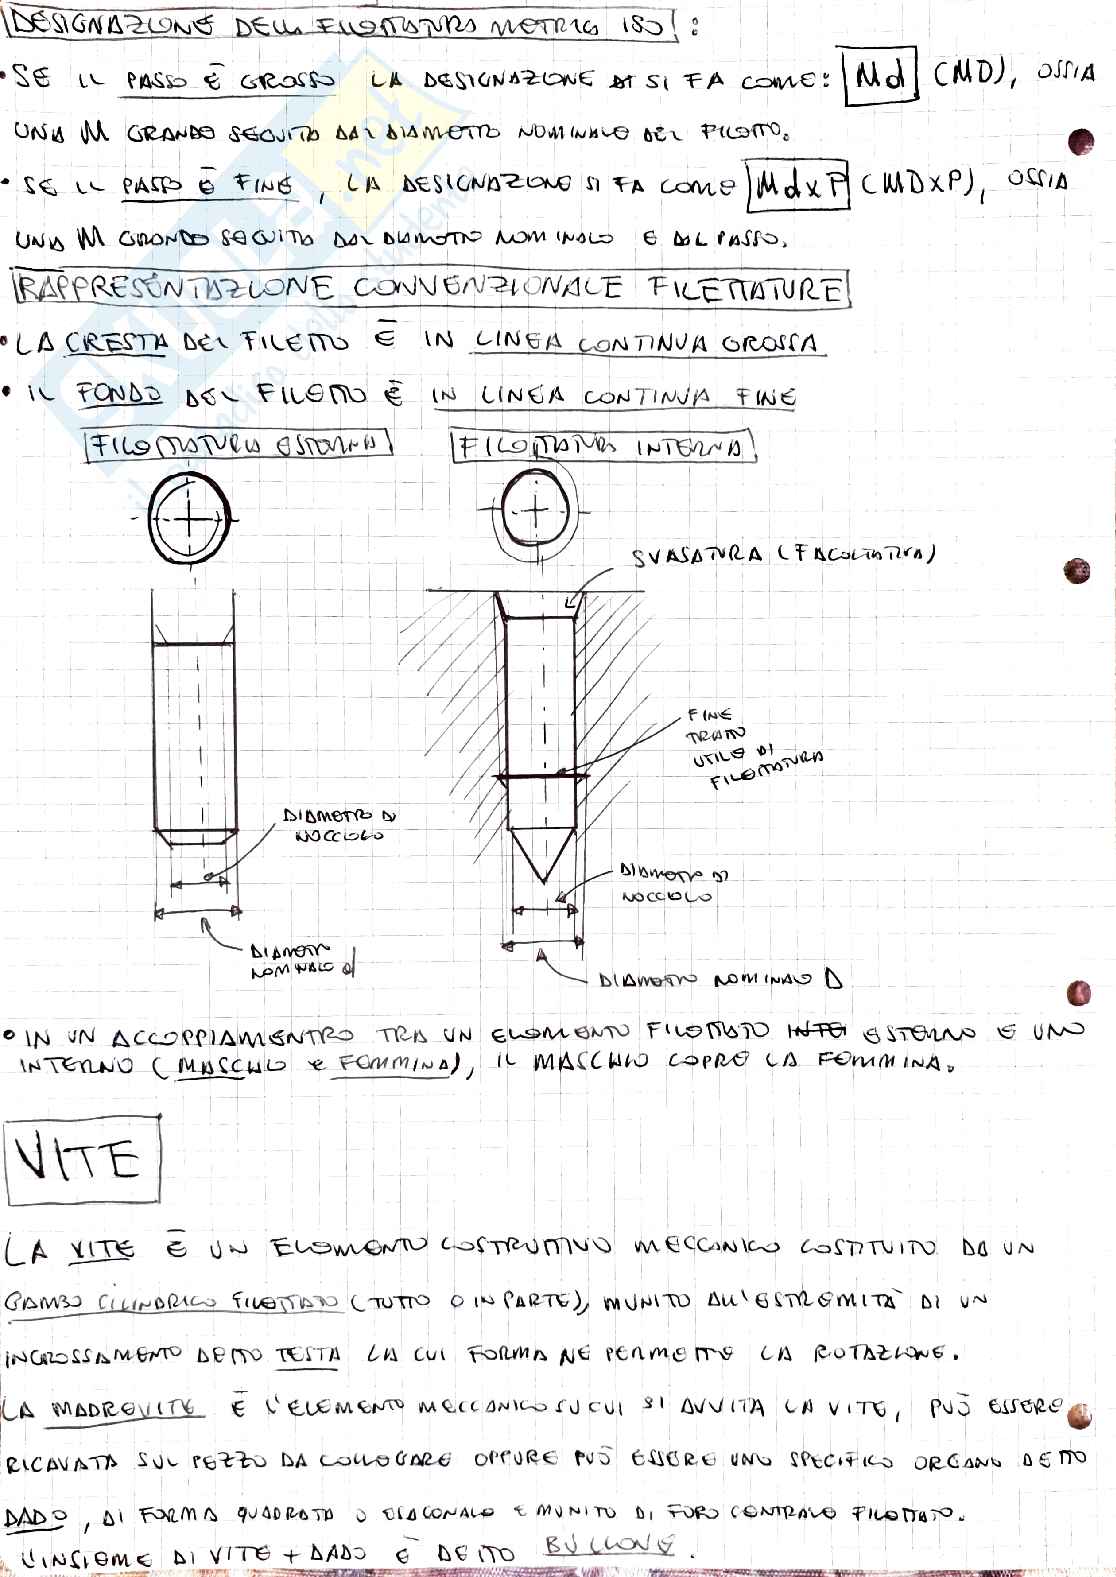 DESIGNAZIONE DELLA FILETTATURA METRICA ISO:
• SE IL PASSO È GROSSO LA DESIGNAZIONE DI SI FA COME: Md (MD), OSSIA
UNA M GRANDE SEGUITO DAL DIAMETRO NOMINALE DEL FILETTO.
• SE IL PASSO È FINE, LA DESIGNAZIONE SI FA COME MdxP (MDxP), OSSIA
UNA M GRANDE SEGUITO DAL DIAMETRO NOMINALE E DAL PASSO.
RAPPRESENTAZIONE CONVENZIONALE FILETTATURE
• LA CRESTA DEL FILETTO È IN LINEA CONTINUA GROSSA
• IL FONDO DEL FILETTO È IN LINEA CONTINUA FINE
FILETTATURA ESTERNA FILETTATURA INTERNA
SVASATURA (FACOLTATIVA)
FINE
TRATTO
UTILE DI
FILETTATURA
DIAMETRO DI
NOCCIOLO
DIAMETRO DI
NOCCIOLO
DIAMETRO
NOMINALE d
DIAMETRO NOMINALE D
• IN UN ACCOPPIAMENTRO TRA UN ELEMENTO FILETTATO INTE ESTERNO E UNO
INTERNO (MASCHIO e FEMMINA), IL MASCHIO COPRE LA FEMMINA.
VITE
LA VITE È UN ELEMENTO COSTRUTTIVO MECCANICO COSTITUITO DA UN
GAMBO CILINDRICO FILETTATO (TUTTO O IN PARTE), MUNITO ALL'ESTREMITÀ DI UN
INGROSSAMENTO DETTO TESTA LA CUI FORMA NE PERMETTE LA ROTAZIONE.
LA MADREVITE È L'ELEMENTO MECCANICO SU CUI SI AVVITA LA VITE, PUÒ ESSERE
RICAVATA SUL PEZZO DA COLLEGARE OPPURE PUÒ ESSERE UNO SPECIFICO ORGANO DETTO
DADO, DI FORMA QUADRATA O ESAGONALE E MUNITO DI FORO CENTRALE FILETTATO.
L'INSIEME DI VITE + DADO È DETTO BULLONE.